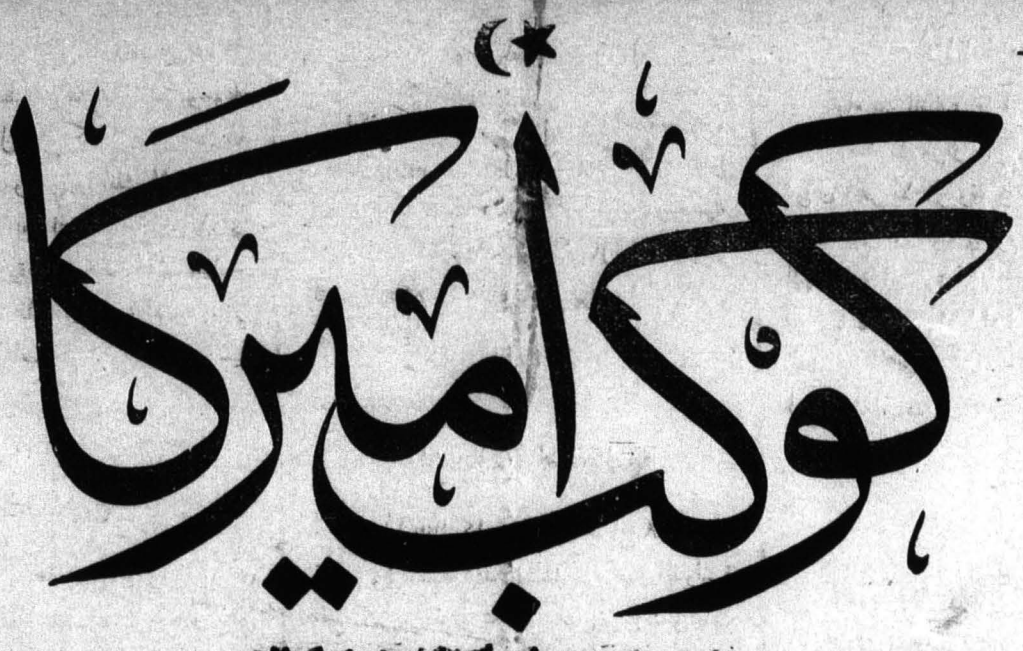 كوكب أميركا